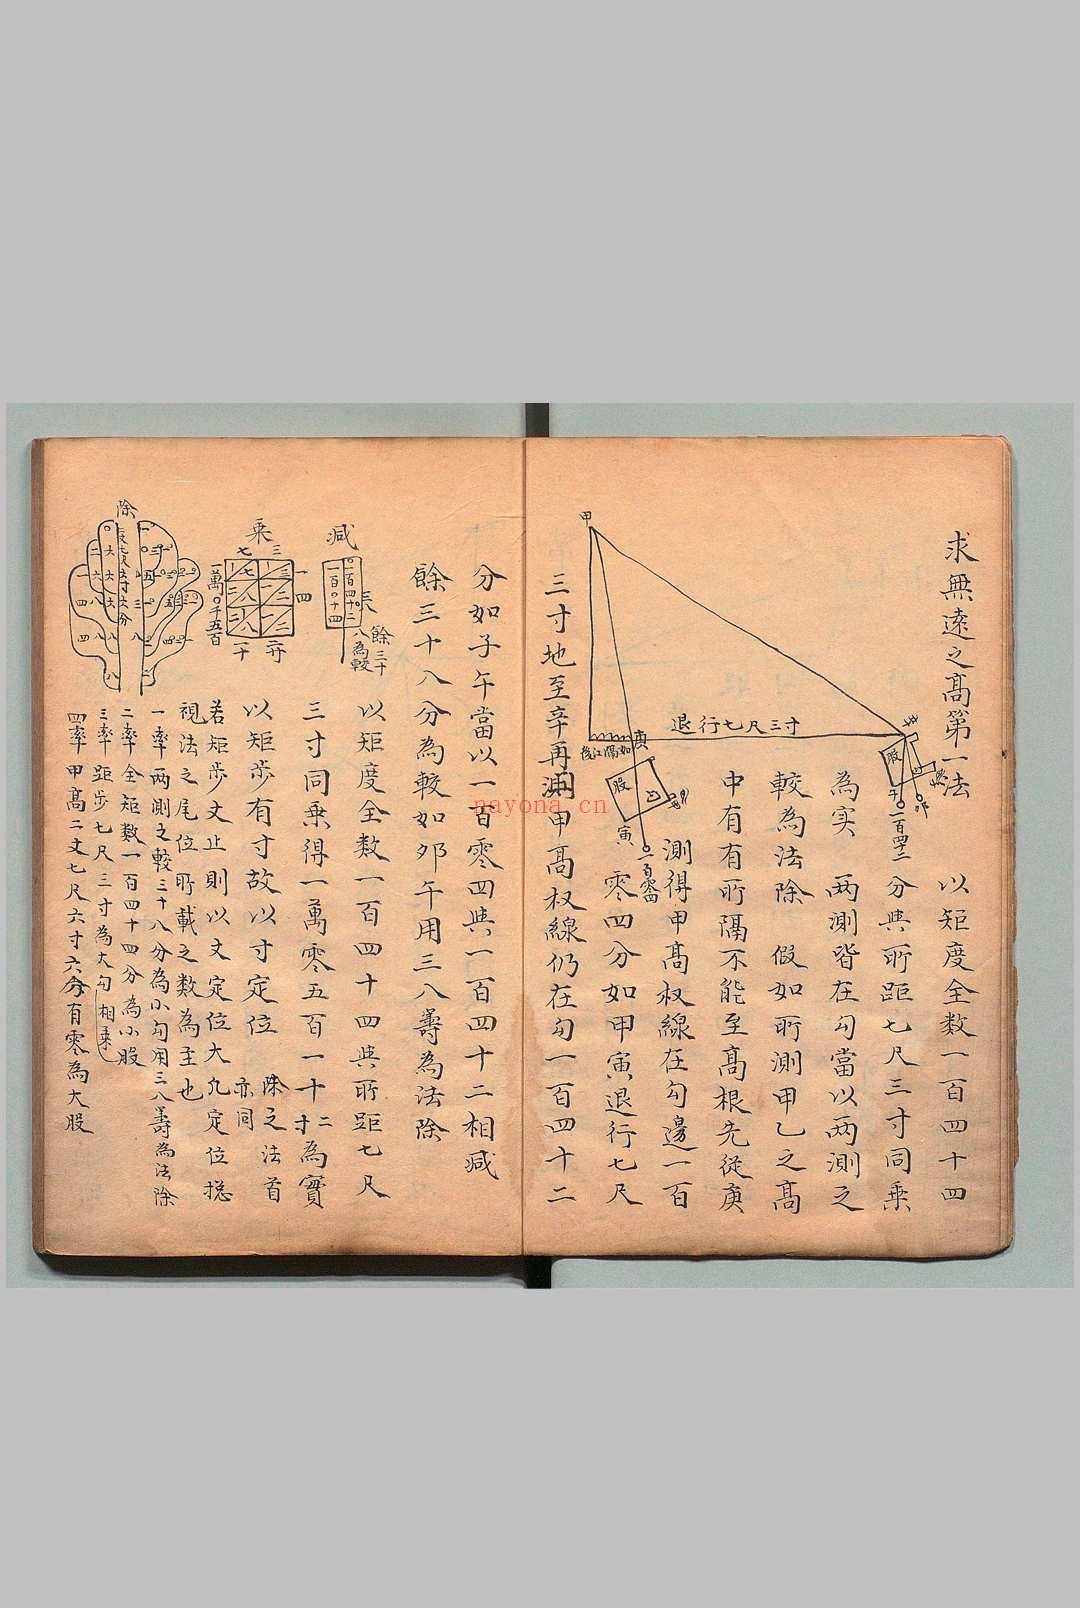 求無遠之髙第一法
以矩度全数一百四十四
分與所距七尺三寸同乗
為实
两測皆在勾當以两測之
較為法除
假如所測甲乙之髙
中有有所隔不能至髙根先從庚
測得甲髙权線在勾邊一百
零四分如甲寅退行七尺
三寸地至辛再測甲髙权線仍在勾一百四十二
甲
退行七尺三寸
庚
辛
如隔江後
股
寅
一百零四
股
子
卯
一百四十二
分如子午當以一百零四與一百四十二相减
餘三十八分為較如夘午用三八筹為法除
以矩度全数一百四十四與所距七尺
三寸同乗得一萬零五百一十二寸為實
以矩步有寸故以寸定位
除之法首亦同
若矩步丈止則以丈定位大凢定位揔
視法之尾位所載之数為主也
一率两測之較三十八分為小勾用三八筹為法除
二率全矩数一百四十四分為小股
三率距步七尺三寸為大勾
相乗
四率甲髙二丈七尺六寸六分有零為大股
减
一百四十二
一百〇四
餘三十八為較
乗
七三
一四
一萬〇千五百
一十
二寸
除